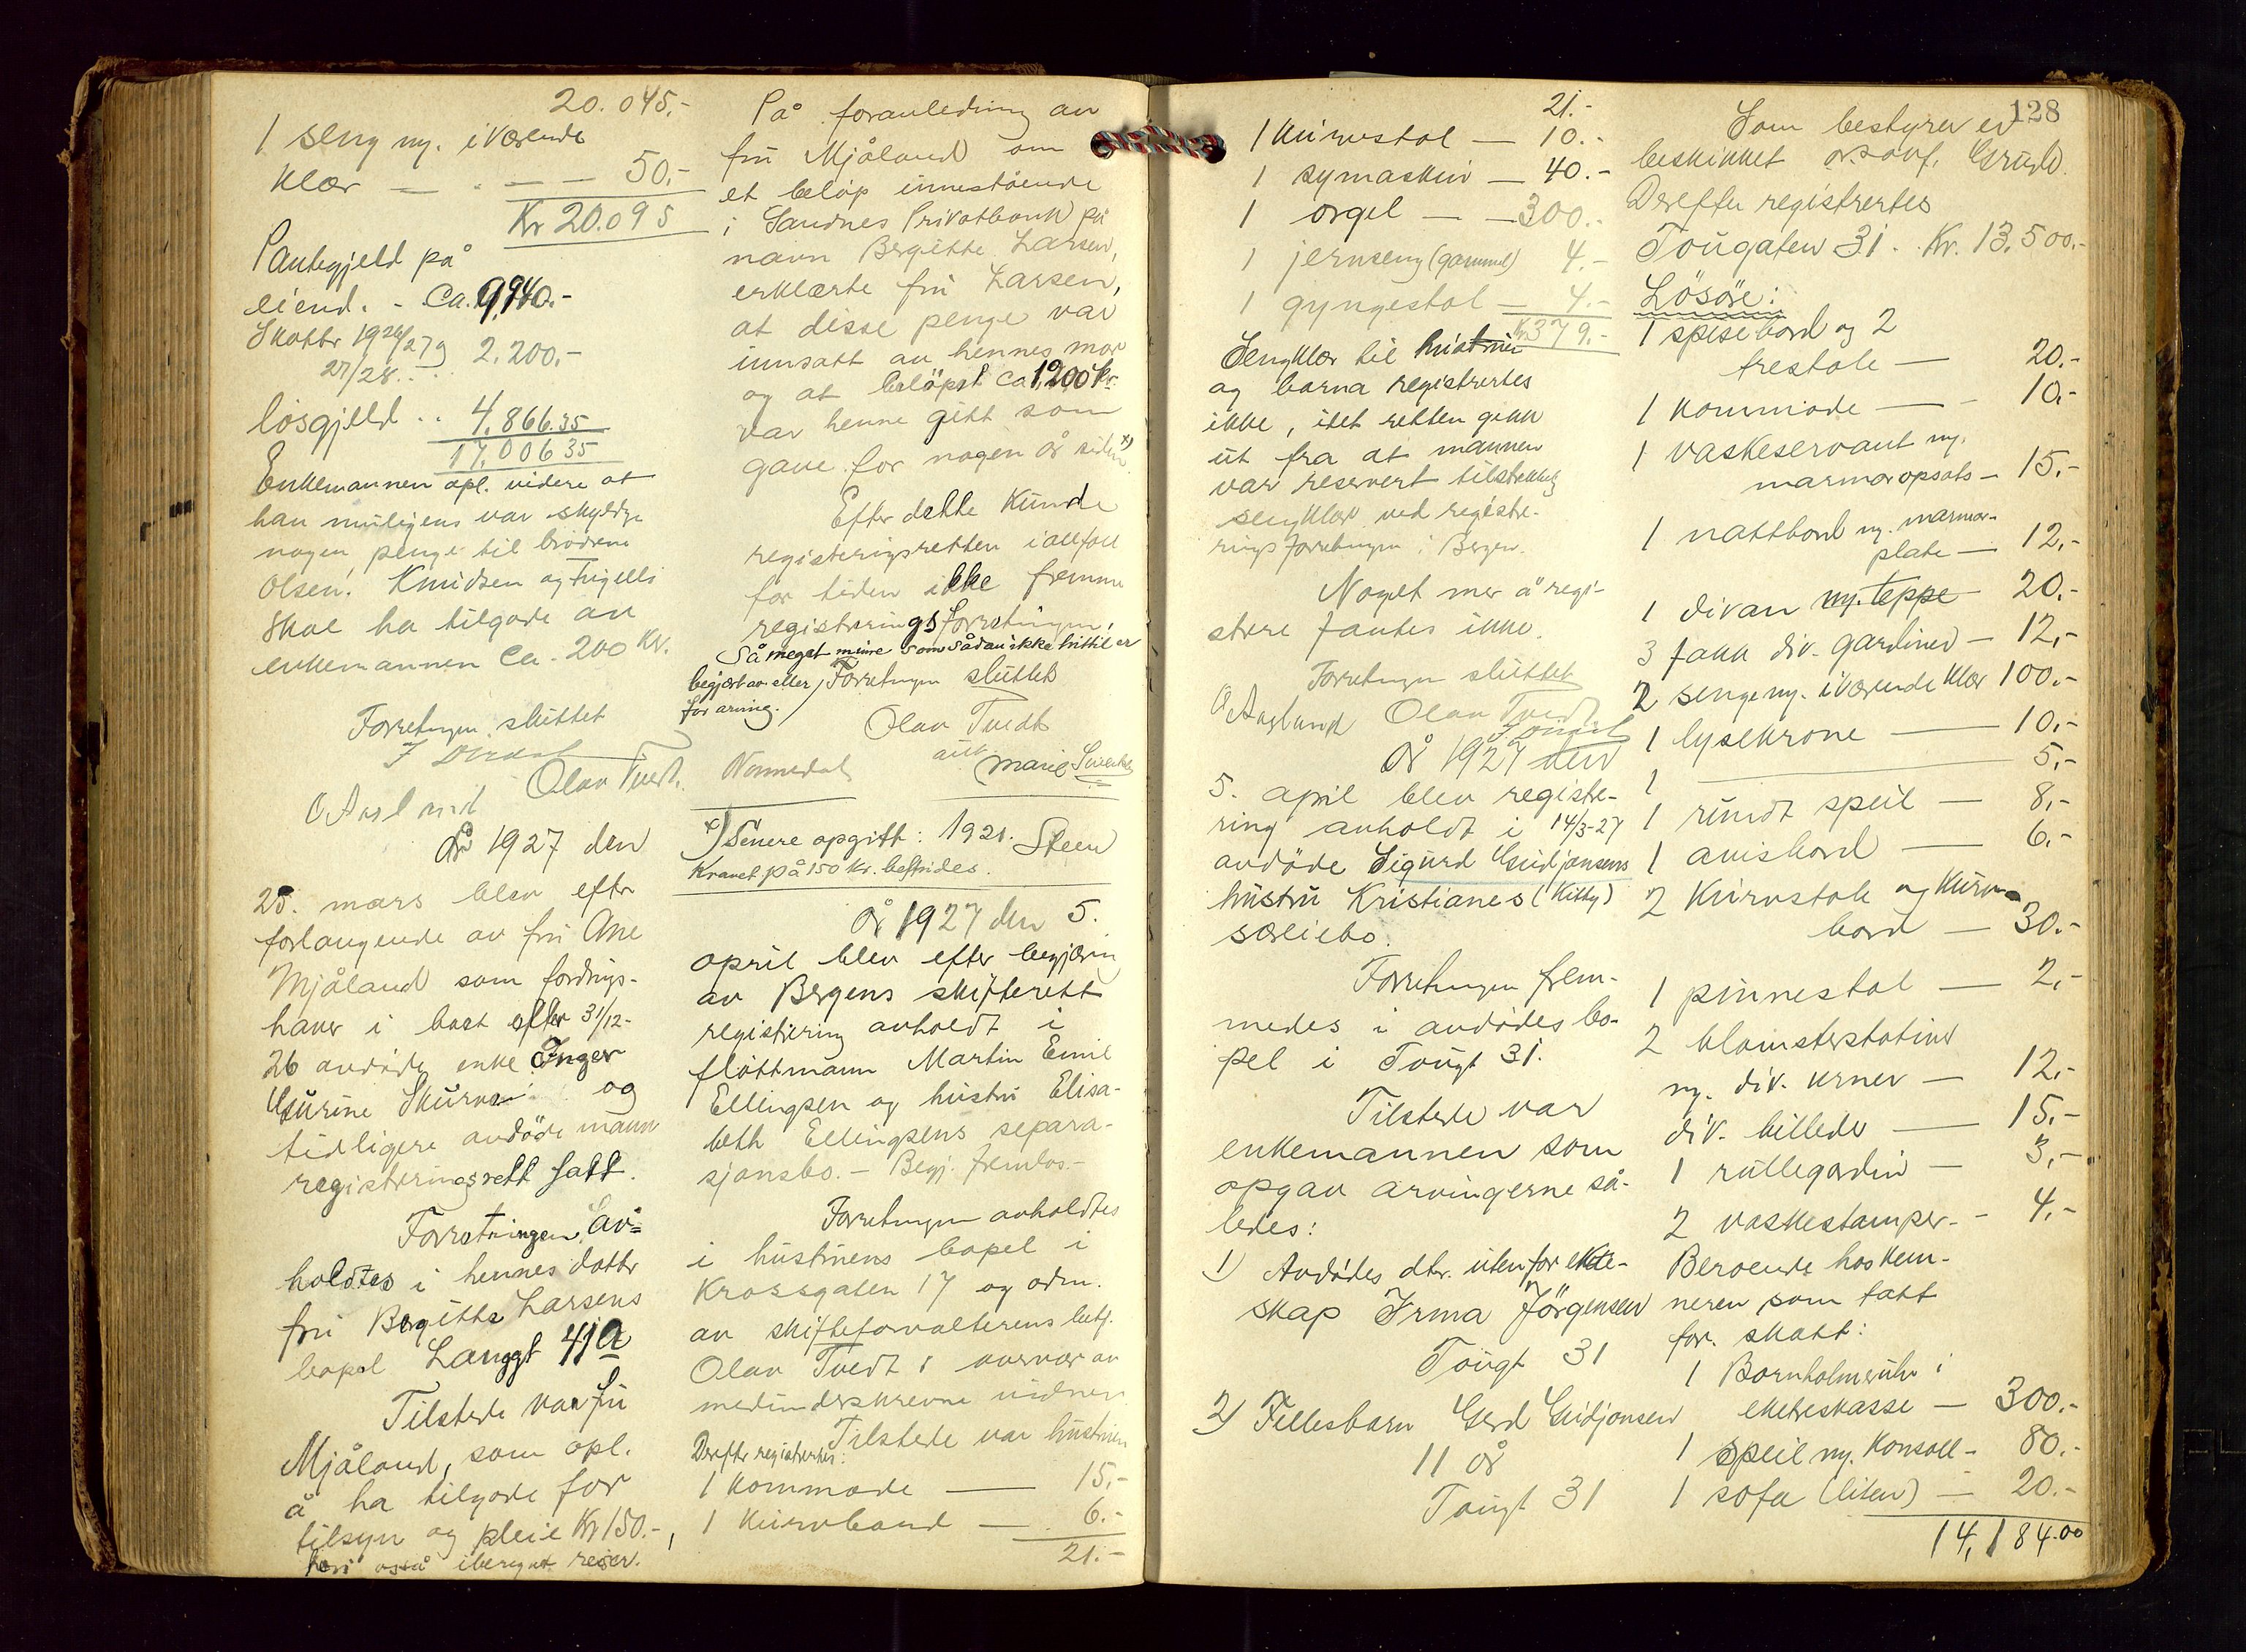 20.045.-
1 seng m. iværende
klær — - — — 50.-
Kr 20.095
Pantegjeld på
eiend. - ca. 9,940.-
Skatter 1926/27 og
27/28. . . . 2.200.-
løsgjeld . . 4.866.35
17.006 35
Enkemannen opl. videre at
han muligens var skyldig
nogen penge til brødrene
Olsen. Knudsen og
skal ha tilgode av
enkemannen ca. 200 kr.
Forretningen sluttet
Olav Tvedt.
O Aasland
År 1927 den
28. mars blev efter
forlangende av fru Ane
Mjåland som fordrings-
haver i boet efter 31/12-
26 avdøde enke Inger
Gurine Skurve og
tidligere avdøde mann
registreringsrett satt.
Forretningen av-
holdtes i hennes datter
fru Bergitte Larsens
bopel Langgt 41a
Tilstede var fru
Mjåland, som opl.
å ha tilgode for
tilsyn og pleie Kr 150.-,
heri også iberegnet reiser.
På foranledning av
fru Mjåland om
et beløp innestående
i Sandnes Privatbank på
navn Bergitte Larsen,
erklærte fru Larsen,
at disse penge var
innsatt av hennes mor
og at beløpet ca 1200 kr.
var henne gitt som
gave for nogen år siden x)
Efter dette kunde
registeringsretten iallfall
for tiden ikke fremme
registreringsforretningen,
Så meget minne som sådan ikke hittil er
begjært av eller / Forretningen sluttet
for arving.
Olav Tvedt
aut
Nonnedal Marie
x) Senere opgitt: 1921. Steen
Kravet på 150 kr. bestrides.
År 1927 den 5.
april blev efter begjæring
av Bergens skifterett
registrering avholdt i
fløttmann Martin Emil
Ellingsen og hustru Elisa-
beth Ellingsens separa-
sjonsbo. - Begj. fremlas.-
Forretningen avholdtes
i hustruens bopel i
Krossgaten 17 og adm.
av skifteforvalterens betj.
Olav Tvedt i overvær av
medunderskrevne vidner
Tilstede var hustruen
Derefter registrertes:
1 kommode — 15.-
1 kurvbord — 6.-
21.-
21.-
1 kurvstol — 10.-
1 symaskin — 40.-
1 orgel — — 300.-
1 jernseng (gammel) 4.-
1 gyngestol — 4.-
Kr 379.-
Sengklær til hustruen
og barna registrertes
ikke, idet retten gikk
ut fra at mannen
var reservert tilstrekkelig
sengklær ved registre-
ringsforretningen i Bergen.
Noget mer å regi-
strere fantes ikke.
Forretningen sluttet
O Aasland Olav Tvedt
År 1927 den
5. april blev registre-
ring avholdt i 14/3-27
avdøde Sigurd Gudjonsens
hustru Kristianes (Kitty)
særeiebo.
Forretningen frem-
medes i avdødes bo-
pel i Tougt 31.
Tilstede var
enkemannen som
opgav arvingerne så-
ledes:
1) Avdødes dtr. utenfor ekte-
skap Irma Jörgensen
Tougt 31
2) Fellesbarn Gerd Gudjonsen
11 år
Tougt 31
128
Som bestyrer er
beskikket o.r.sakf. Grude.
Derefter registrertes
Tougaten 31. Kr. 13.500.-
Løsøre:
1 spisebord og 2
trestole — 20.-
1 kommode — - 10.-
1 vaskeservant m.
marmoropsats — 15.-
1 nattbord m. marmor-
plate — 12.-
1 divan m. teppe 20.-
3 fakk div. gardiner — 12.-
2 senge m. iværende klær 100.-
1 lysekrone — 10.-
1 — 5.-
1 rundt speil — 8.-
1 avisbord — 6.-
2 kurvstole og kurv-
bord — 30.-
1 pinnestol — 2.-
2 blomsterstativer
m. div. urner — 12.-
div. billeder — 15.-
1 rullegardin — 3.-
2 vaskestamper. - 4.-
Beroende hos kem-
neren som tatt
for skatt:
1 Bornholmerur i
eketreskasse — 300.-
1 speil m. konsoll - 80.-
1 sofa (liten) — 20.-
14,184.00